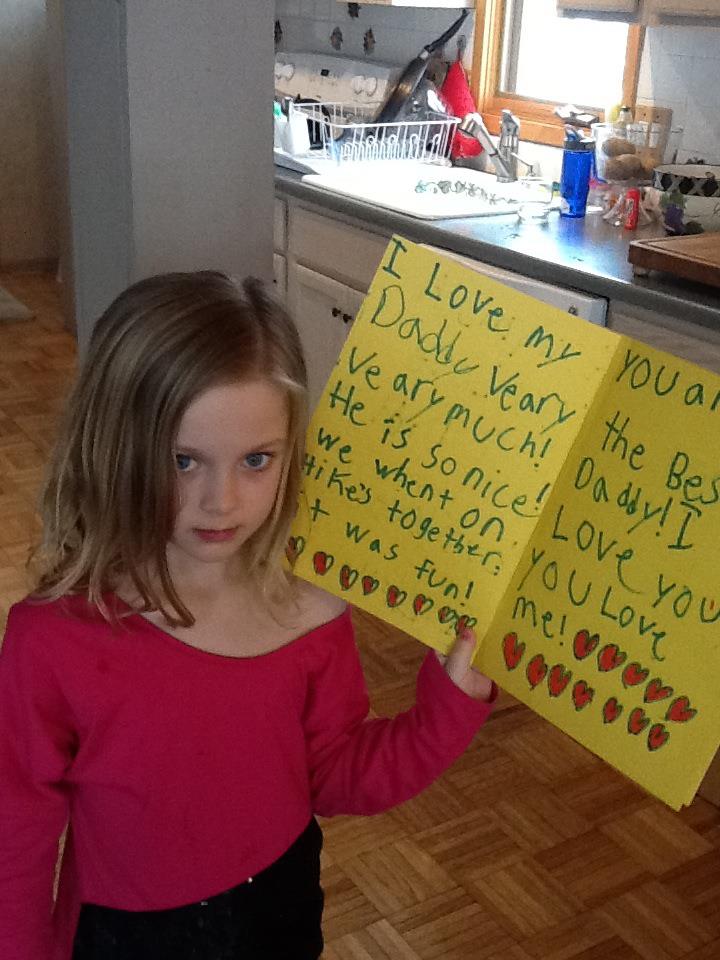 I Love my
Daddy Veary
Veary much!
He is so nice!
we whent on
Hike's together.
it was fun!
You ar
the Bes
Daddy! I
Love you
you Love
me!